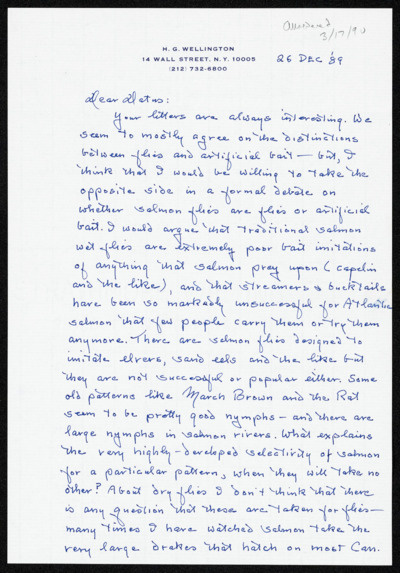 Answered
3/17/90
H. G. WELLINGTON
14 WALL STREET, N. Y. 10005
(212) 732-6800
26 DEC '89
Dear Datus:
Your letters are always interesting. We
seem to mostly agree on the distinctions
between flies and artificial bait — but, I
think that I would be willing to take the
opposite side in a formal debate on
whether salmon flies are flies or artificial
bait. I would argue that traditional salmon
wet flies are extremely poor bait imitations
of anything that salmon prey upon (capelin
and the like), and that streamers & bucktails
have been so markedly unsuccessful for Atlantic
salmon that few people carry them or try them
anymore. There are salmon flies designed to
imitate elvers, sand eels and the like but
they are not successful or popular either. Some
old patterns like March Brown and the Rat
seem to be pretty good nymphs — and there are
large nymphs in salmon rivers. What explains
the very highly-developed selectivity of salmon
for a particular pattern, when they will take no
other? About dry flies I don't think that there
is any question that these are taken for flies —
many times I have watched salmon take the
very large drakes that hatch on most Can.